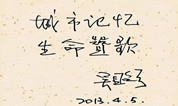 城市记忆
生命赞歌
2013.4.5.